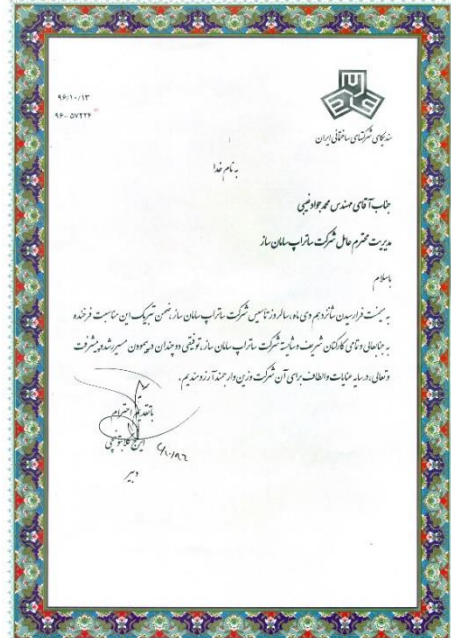 ۹۶/۱۰/۱۳
۹۶-۵۷۲۲۶
سندیکای شرکتهای ساختمانی ایران
به نام خدا
جناب آقای مهندس محمد جواد غیبی
مدیریت محترم عامل شرکت ساتراپ سامان ساز
باسلام
به میمنت فرارسیدن شانزدهم دی ماه، سالروز تاسیس شرکت ساتراپ سامان ساز، ضمن تبریک این مناسبت فرخنده
به جنابعالی و تمامی کارکنان شریف و شایسته شرکت ساتراپ سامان ساز، توفیقی دوچندان در پیمودن مسیر رشد و پیشرفت
و تعالی، در سایه عنایات و الطاف برای آن شرکت وزین و ارجمند آرزومندیم.
باتقدیم احترام
ایرج گلابتونچی
دبیر